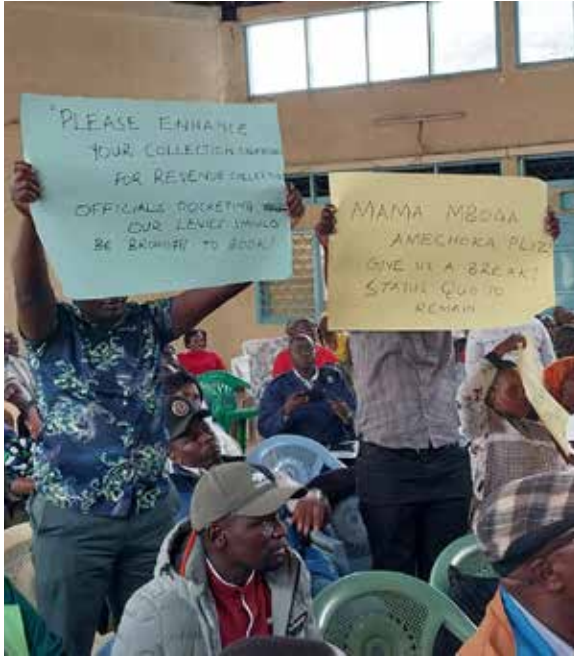 "PLEASE ENHANCE
YOUR COLLECTION
FOR REVENUE COLLECTION
OFFICIALS POCKETING
OUR LEVIES SHOULD
BE BROUGHT TO BOOK!
MAMA MBOGA
AMECHOKA PLIZ
GIVE US A BREAK!
STATUS QUO TO
REMAIN